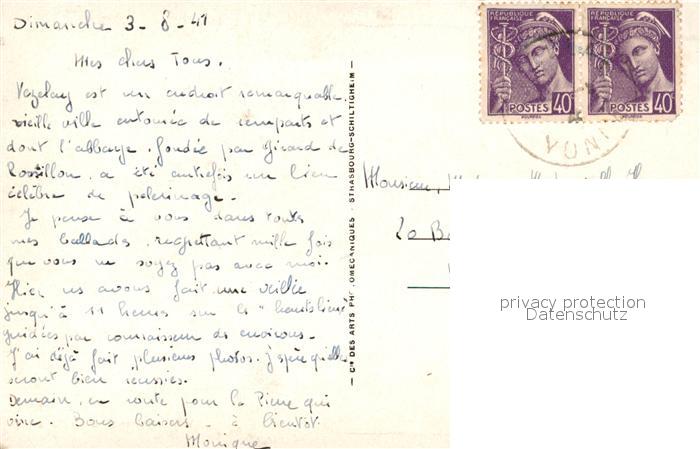 Dimanche 3-8-41
Mes chers Tous.
Vezelay est un endroit remarquable
vieille ville entourée de remparts et
dont l'abbaye, fondée par Girard de
Rossillon, a été autrefois un lieu
célèbre de pelerinage.
Je pense à vous dans toutes
mes ballades, regrettant mille fois
que vous ne soyez pas avec moi.
Hier ns avons fait une veillée
jusqu'à 11 heures sur le "haut lieu"
guidées par connaisseur de environs.
J'ai déjà fait plusieurs photos. J'espère qu'elles
seront bien réussies.
Demain, en route pour la Pierre qui
vire. Bons baisers - à bientôt.
Monique
Cie DES ARTS PHOTOMECANIQUES - STRASBOURG-SCHILTIGHEIM
RÉPUBLIQUE FRANÇAISE
POSTES 40c
RÉPUBLIQUE FRANÇAISE
POSTES 40c
YONNE
Monsieur,
La
privacy protection
Datenschutz